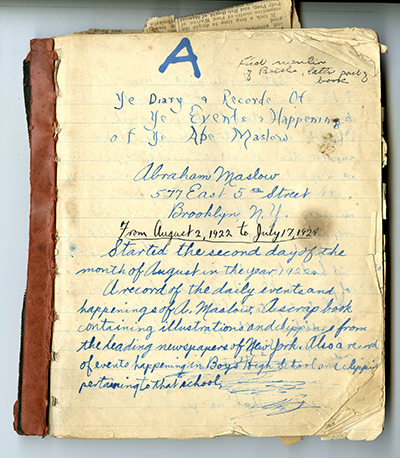 A
First mention
of Bertha, later part of
book
Ye Diary & Records Of
Ye Events & Happenings
of Ye Abe Maslow
Abraham Maslow
577 East 5th Street
Brooklyn N.Y.
From August 2, 1922 to July 17, 1924
Started the second day of the
month of August in the year 1922
A record of the daily events and
happenings of A. Maslow. A scrap book
containing illustrations and clippings from
the leading newspapers of New York. Also a record
of events happening in Boys' High School and clippings
pertaining to that school.